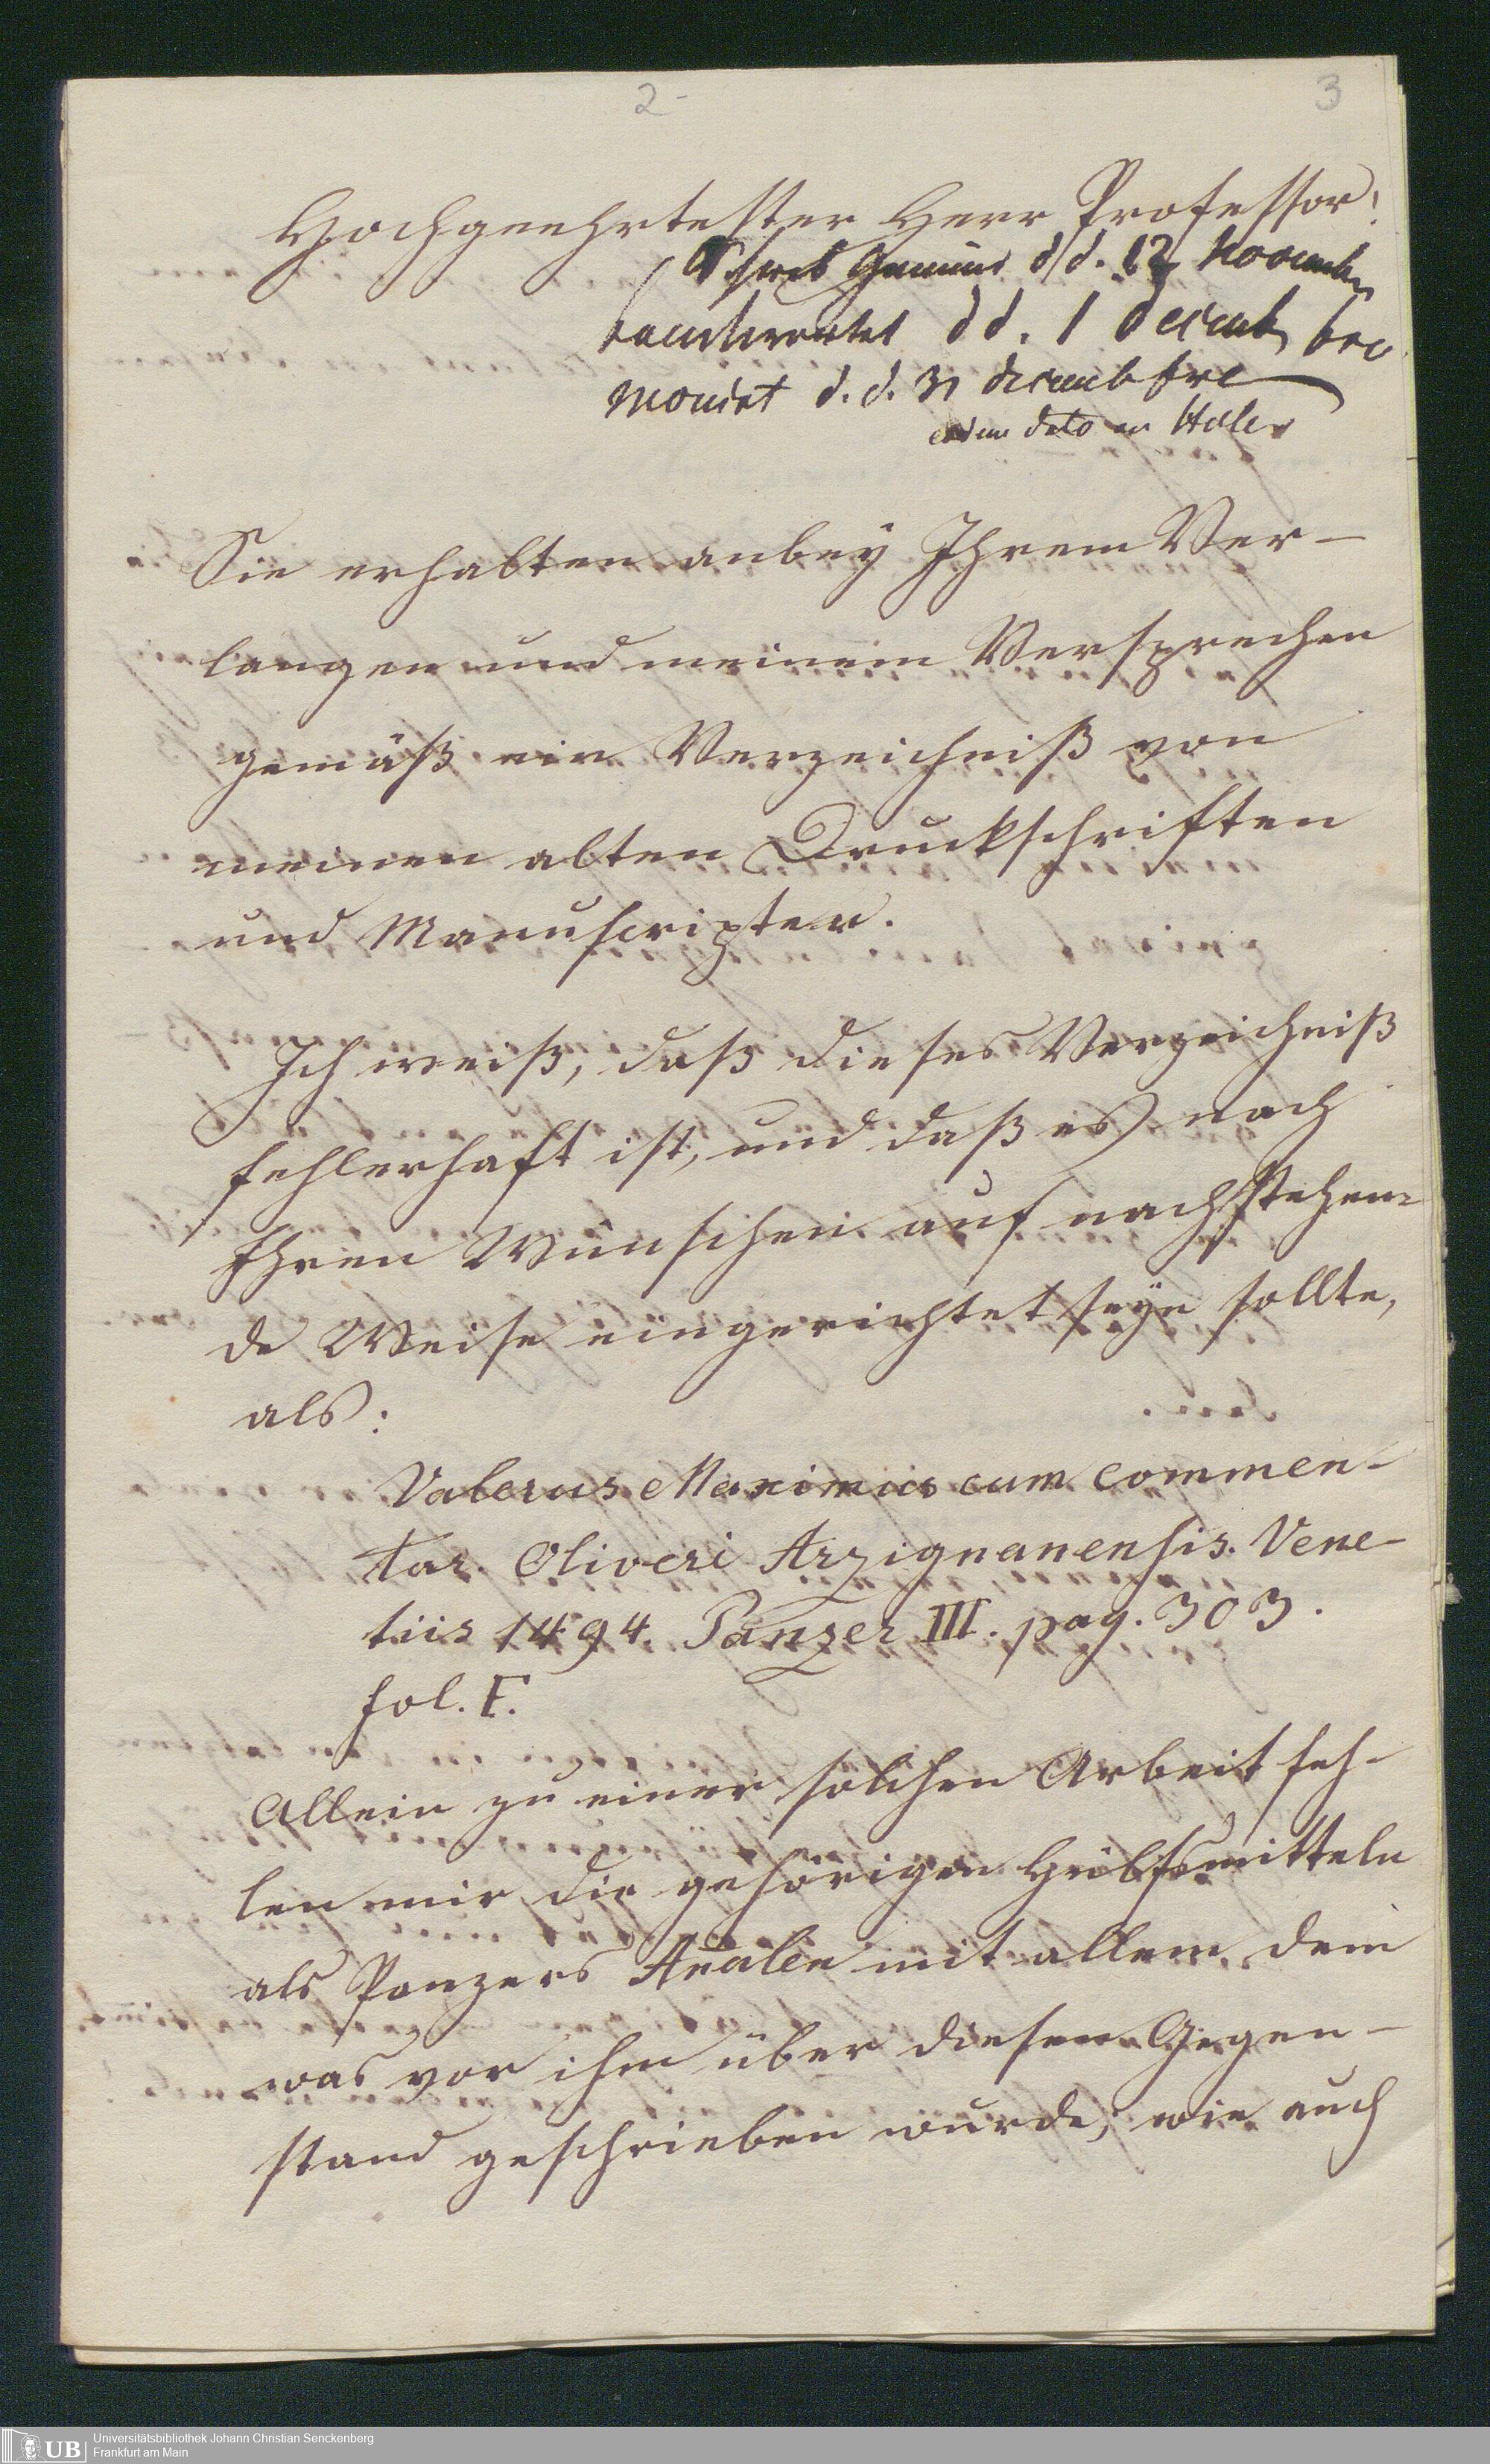 2-
3
Hochgeehrtester Herr Professor!
Gmünd d d. 12 Novemb
beantwortet d d. 1 Decemb
moniert d. d. 31 decemb
eodem dato an
Sie erhalten anbey Ihrem Ver-
langen und meinem Versprechen
gemäß ein Verzeichniß von
meinen alten Druckschriften
und Manuscripten.
Ich weiß, daß dieses Verzeichniß
fehlerhaft ist, und daß es nach
Ihren Wünschen auf nachstehen-
de Weise eingerichtet seyn sollte,
als:
Valerius Maximus cum commen-
tar. Oliveri Arzignanensis. Vene-
tiis 1494. Panzer III. pag. 303.
fol. F.
Allein zu einer solchen Arbeit feh-
len mir die gehörigen Hülfsmitteln
als Panzers Analen mit allem dem
was vor ihm über diesen Gegen-
stand geschrieben wurde, wie auch
UB
Universitätsbibliothek Johann Christian Senckenberg
Frankfurt am Main